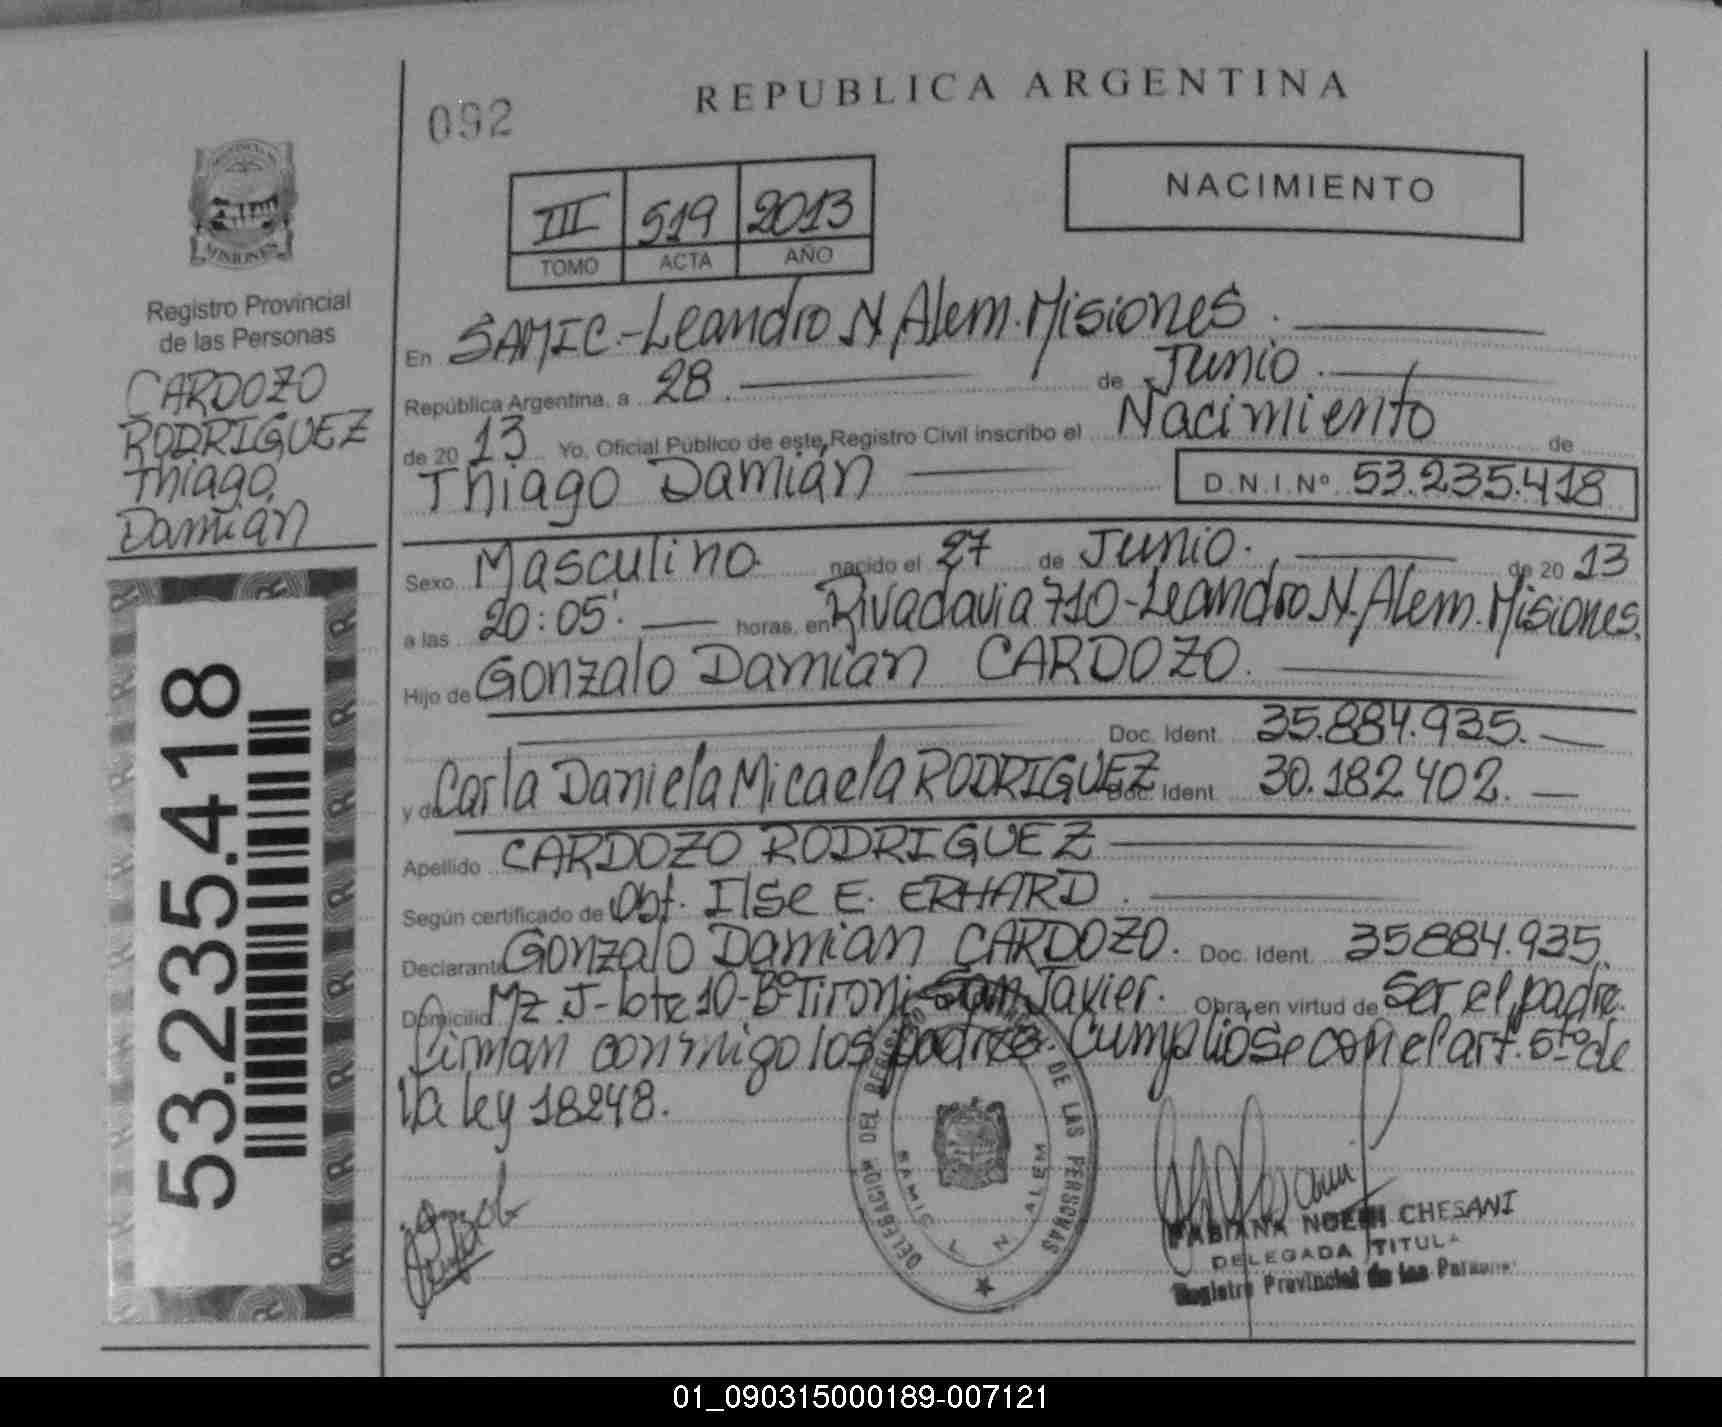 092
REPUBLICA ARGENTINA
NACIMIENTO
III 519 2013
TOMO ACTA AÑO
MISIONES
Registro Provincial
de las Personas
CARDOZO
RODRIGUEZ
Thiago
Damián
53.235.418
En SAMIC.-Leandro N. Alem. Misiones.
República Argentina, a 28. de Junio.
de 20 13 Yo, Oficial Público de este Registro Civil inscribo el Nacimiento de
Thiago Damián D.N.I.Nº 53.235.418
Sexo Masculino. nacido el 27 de Junio. de 20 13
a las 20:05'. horas, en Rivadavia 710-Leandro N. Alem. Misiones.
Hijo de Gonzalo Damián CARDOZO.
Doc. Ident. 35.884.935.
y de Carla Daniela Micaela RODRIGUEZ Doc. Ident. 30.182.402.
Apellido CARDOZO RODRIGUEZ
Según certificado de Obst. Ilse E. ERHARD.
Declarante Gonzalo Damián CARDOZO. Doc. Ident. 35884.935.
Domicilio Mz J-lote 10-Bº Tironi-San Javier. Obra en virtud de Ser el padre.
firman conmigo los padres. Cumpliose con el art. 5to de
la ley 18248.
DELEGACION DEL REGISTRO DE LAS PERSONAS
SAMIC L. N. ALEM
FABIANA NOEMI CHESANI
DELEGADA TITULA
Registro Provincial de las Personas
01_090315000189-007121